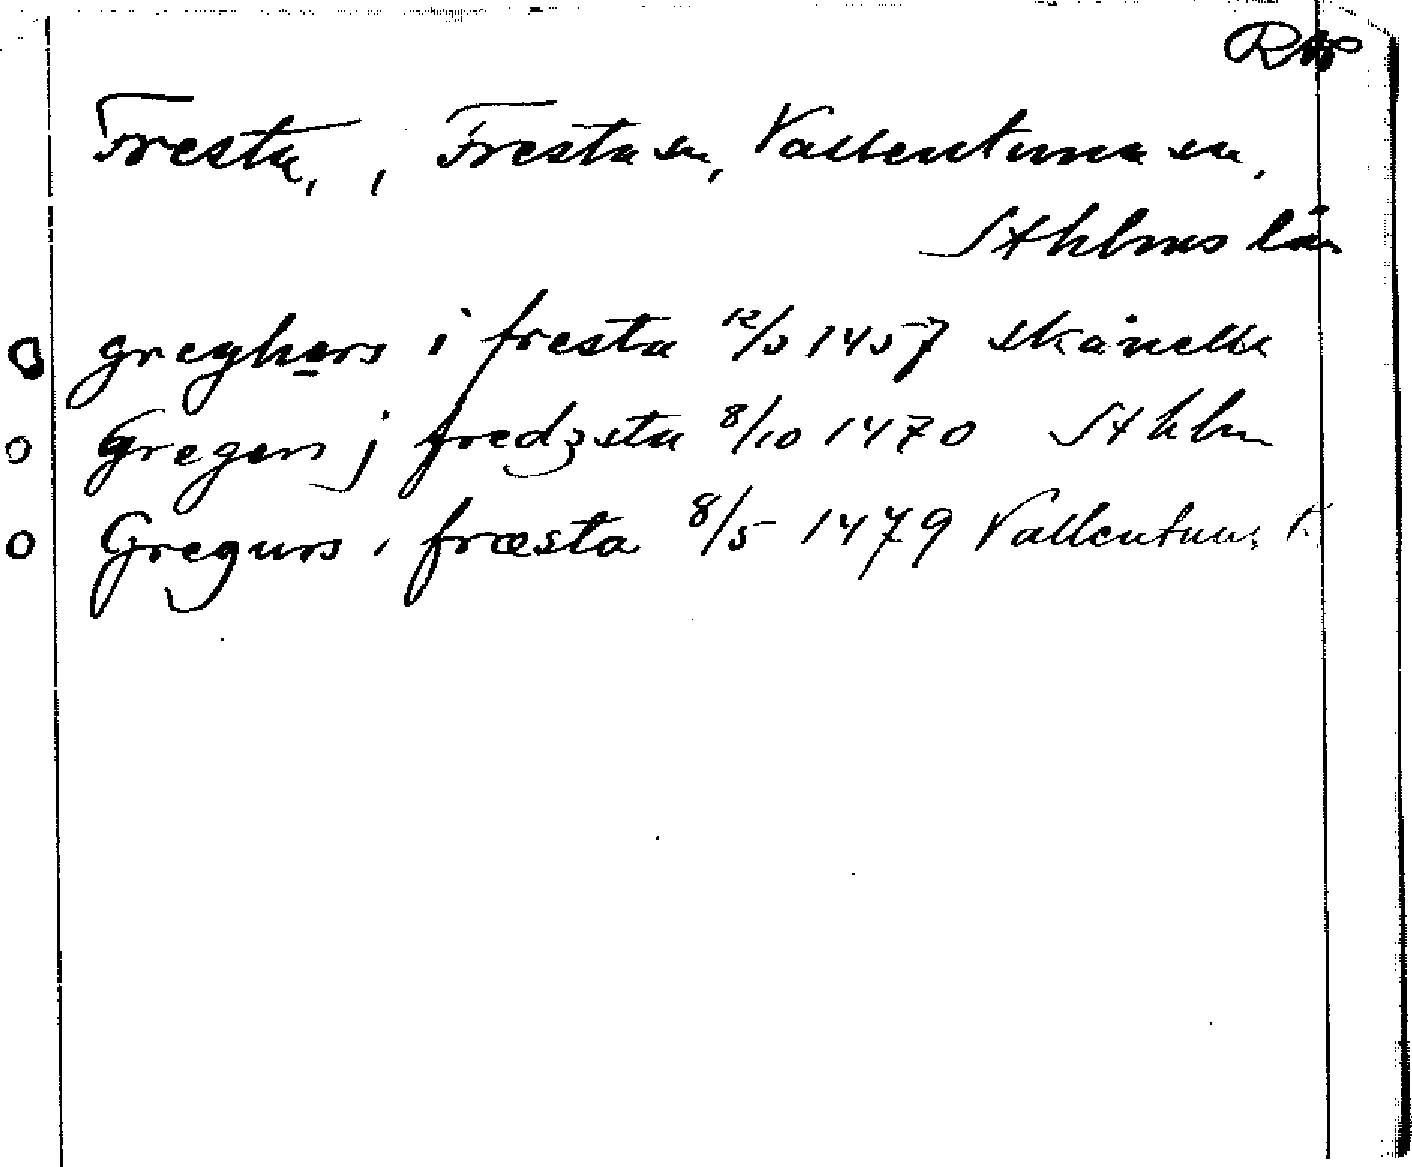 RAP
Fresta, , Fresta sn, Vallentuna sn,
Sthlms län
greghers i fresta 12/5 1457 Skånella
Gregers j fredzsta 8/10 1470 Sthlm
Gregurs i fræsta 8/5 1479 Vallentuna k